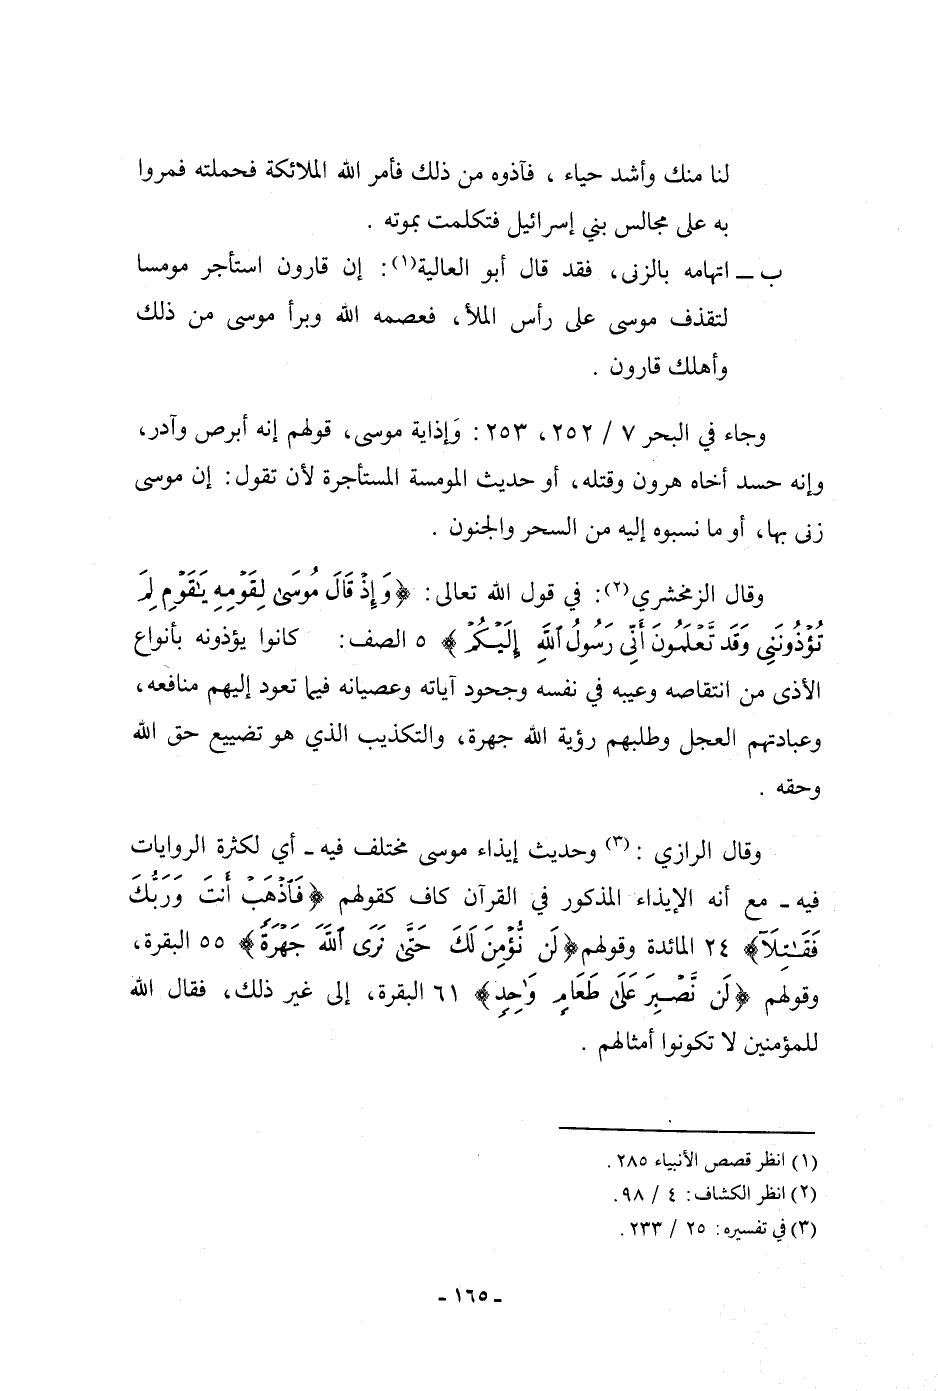 لنا منك وأشد حياء ، فآذوه من ذلك فأمر الله الملائكة فحملته فمروا
به على مجالس بني إسرائيل فتكلمت بموته .
ب ــ اتهامه بالزنى، فقد قال أبو العالية(١): إن قارون استأجر مومسا
لتقذف موسى على رأس الملأ، فعصمه الله وبرأ موسى من ذلك
وأهلك قارون .
وجاء في البحر ٧ / ٢٥٢، ٢٥٣: وَإذاية موسى، قولهم إنه أبرص وآدر،
وإنه حسد أخاه هرون وقتله، أو حديث المومسة المستأجرة لأن تقول: إن موسى
زنى بها، أو ما نسبوه إليه من السحر والجنون .
وقال الزمخشري(٢): في قول الله تعالى: ﴿وَإِذْ قَالَ مُوسَىٰ لِقَوْمِهِ يَٰقَوْمِ لِمَ
تُؤْذُونَنِي وَقَد تَّعْلَمُونَ أَنِّي رَسُولُ ٱللَّهِ إِلَيْكُمْ﴾ ٥ الصف: كانوا يؤذونه بأنواع
الأذى من انتقاصه وعيبه في نفسه وجحود آياته وعصيانه فيما تعود إليهم منافعه،
وعبادتهم العجل وطلبهم رؤية الله جهرة، والتكذيب الذي هو تضييع حق الله
وحقه .
وقال الرازي :(٣) وحديث إيذاء موسى مختلف فيه ـ أي لكثرة الروايات
فيه ـ مع أنه الإيذاء المذكور في القرآن كاف كقولهم ﴿فَٱذْهَبْ أَنتَ وَرَبُّكَ
فَقَٰتِلَآ﴾ ٢٤ المائدة وقولهم﴿لَن نُّؤْمِنَ لَكَ حَتَّىٰ نَرَى ٱللَّهَ جَهْرَةً﴾ ٥٥ البقرة،
وقولهم ﴿لَن نَّصْبِرَ عَلَىٰ طَعَامٍ وَٰحِدٍ﴾ ٦١ البقرة، إلى غير ذلك، فقال الله
للمؤمنين لا تكونوا أمثالهم .
(١) انظر قصص الأنبياء ٢٨٥ .
(٢) انظر الكشاف: ٤ / ٩٨.
(٣) في تفسيره: ٢٥ / ٢٣٣ .
ـ ١٦٥ ـ